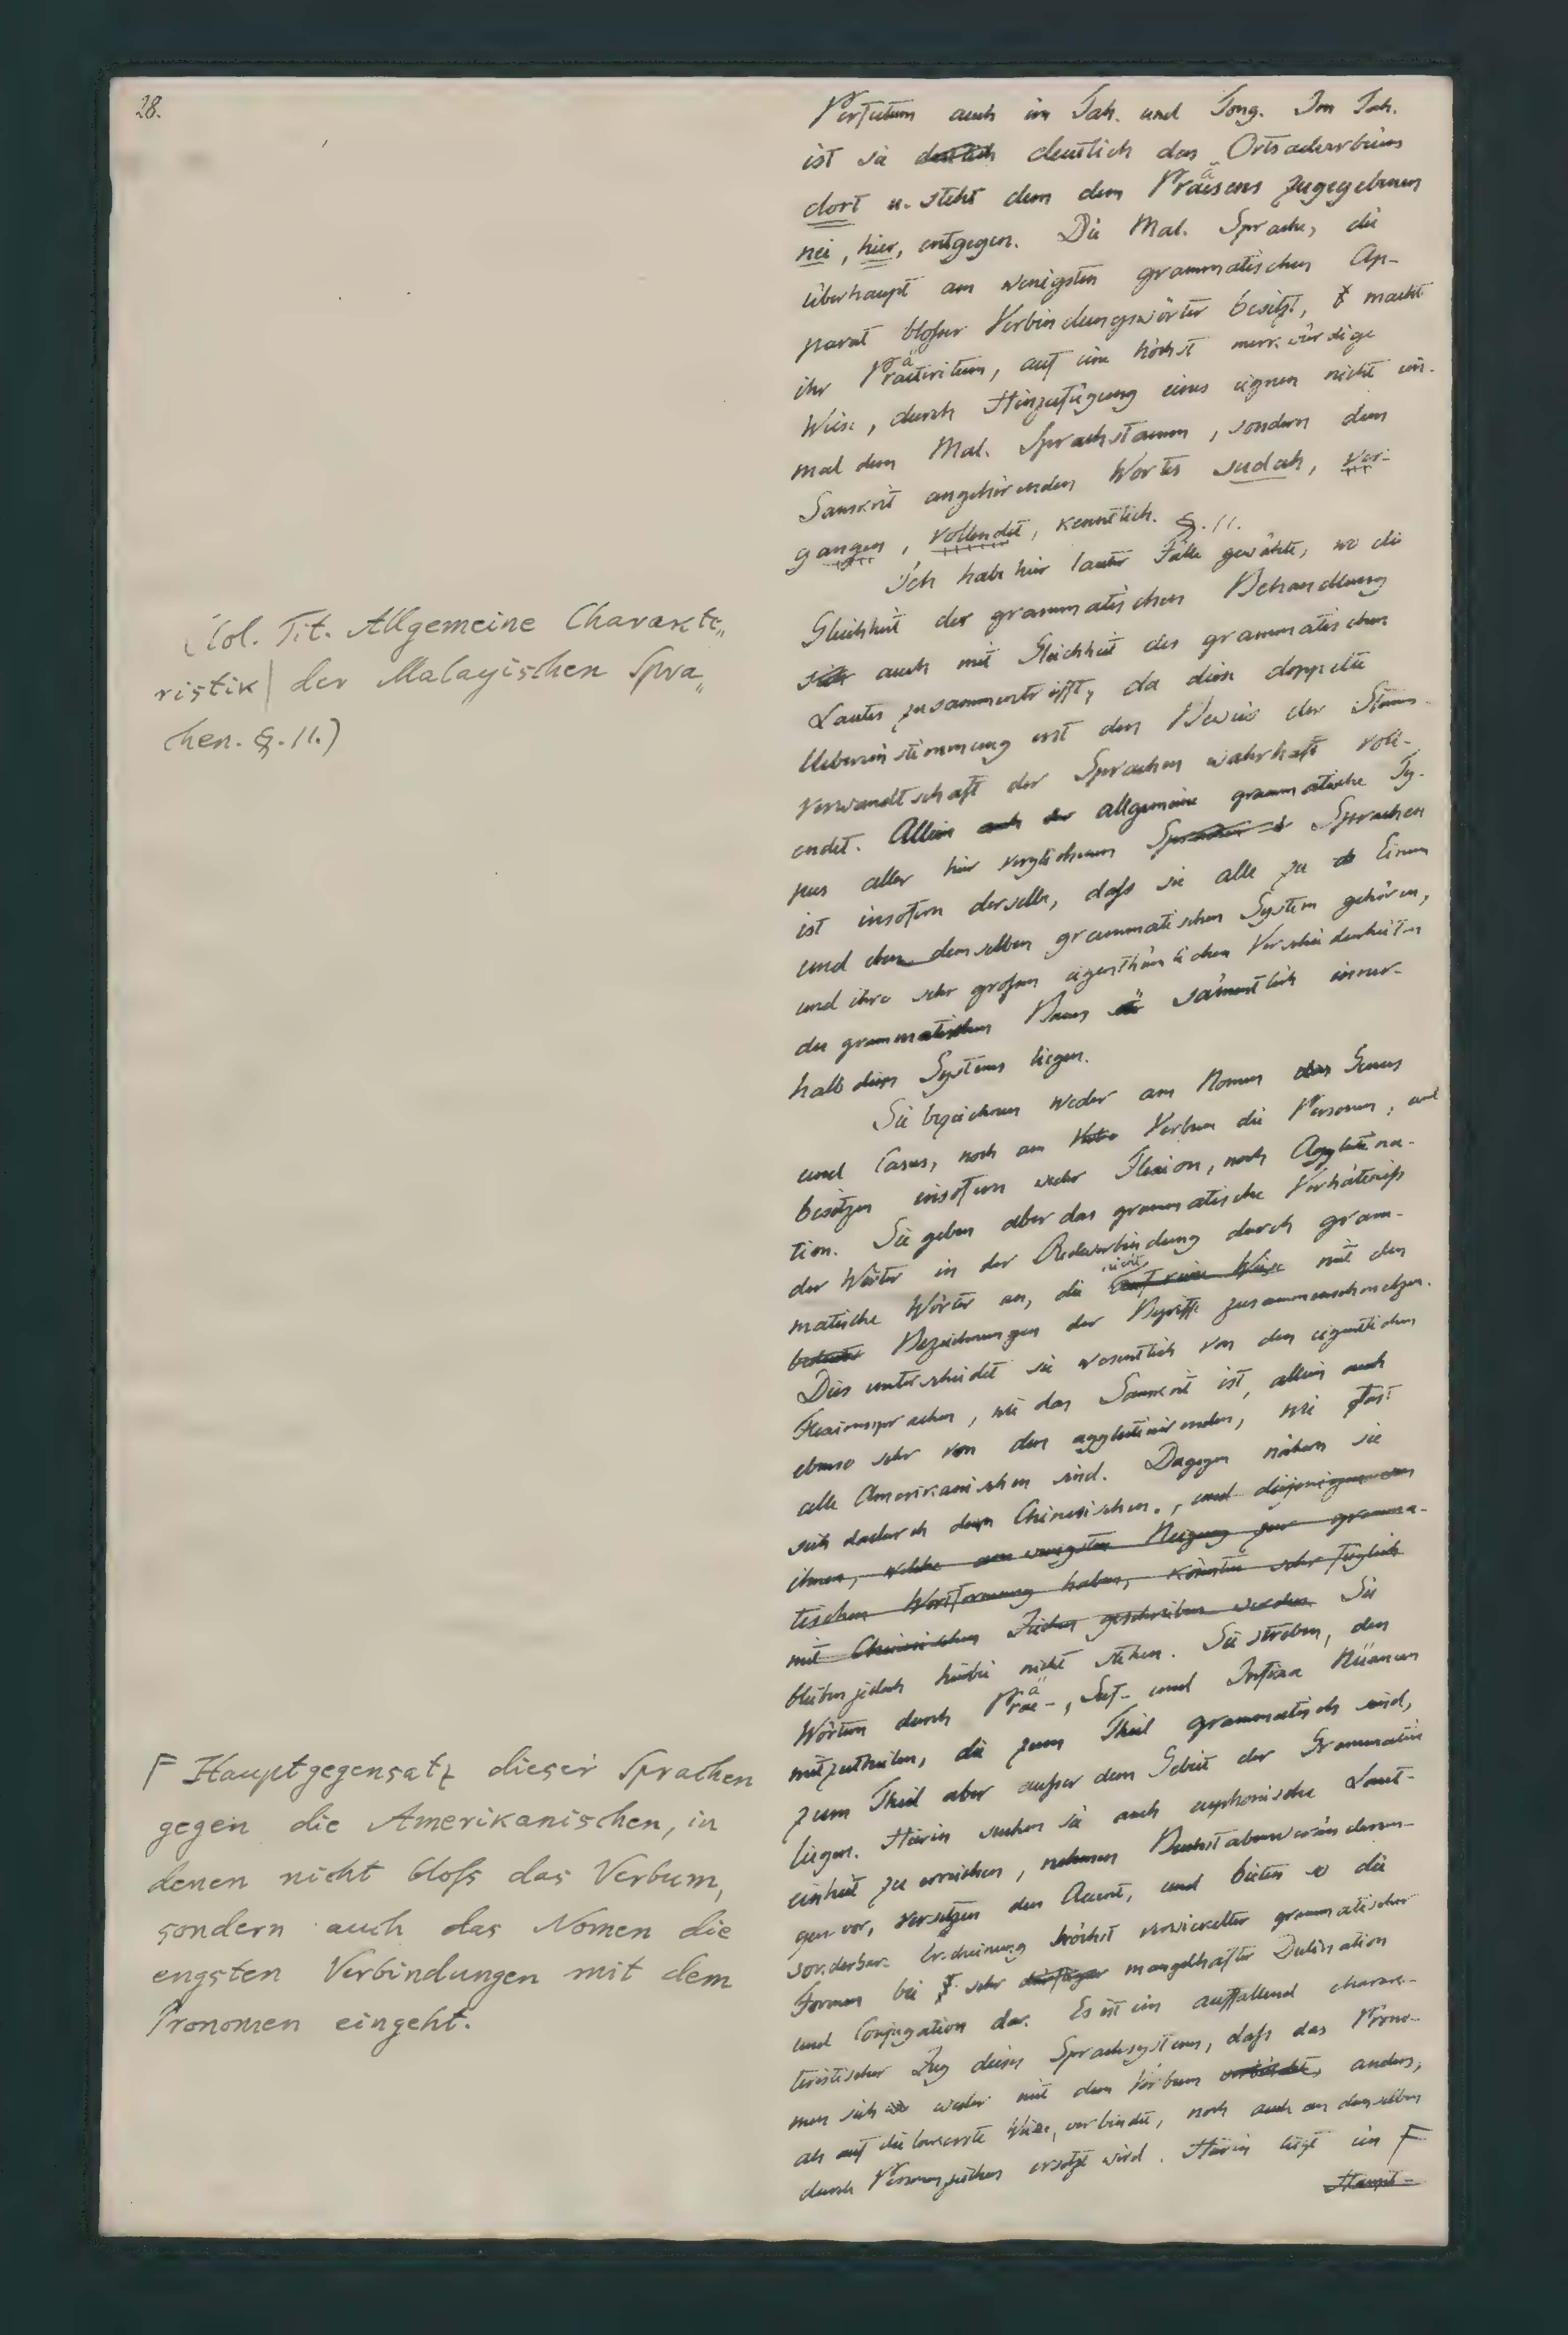 28.
Perfectum auch im Tah. und Tong. Im Tah.
ist sie deutlich deutlich das Ortsadverbium
dort u. steht dem dem Präsens zugegebenen
nei, hier, entgegen. Die Mal. Sprache, die
überhaupt am wenigsten grammatischen Ap-
parat bloßer Verbindungswörter besitzt, macht
ihr Präteritum, auf eine höchst merkwürdige
Weise, durch Hinzufügung eines eignen nicht ein-
mal dem Mal. Sprachstamm, sondern dem
Sanskrit angehörenden Wortes sudah, ver-
gangen, vollendet, kenntlich. §. 11.
Ich habe hier lauter Fälle gewählt, wo die
Gleichheit der grammatischen Behandlung
sich auch mit Gleichheit des grammatischen
Lautes zusammentrifft, da diese doppelte
Uebereinstimmung erst den Beweis der Stamm-
verwandtschaft der Sprachen wahrhaft voll-
endet. Allein auch der allgemeine grammatische Ty-
pus aller hier verglichenen Sprachen Sprachen
ist insofern derselbe, daß sie alle zu Einem
und eben demselben grammatischen System gehören,
und ihre sehr großen eigenthümlichen Verschiedenheiten
des grammatischen Baues sämmtlich inner-
halb dieses Systems liegen.
Sie bezeichnen weder am Nomen das Genus
und Casus, noch am Verbum die Personen, und
besitzen insofern weder Flexion, noch Agglutina-
tion. Sie geben aber das grammatische Verhältniß
der Wörter in der Redeverbindung durch gram-
matische Wörter an, die nicht auf keine Weise mit den
Bezeichnungen der Begriffe zusammenschmelzen.
Dies unterscheidet sie wesentlich von den eigentlichen
Flexionssprachen, wie das Sanskrit ist, allein auch
ebenso sehr von den agglutinirenden, wie fast
alle Amerikanischen sind. Dagegen nähern sie
sich dadurch dem Chinesischen., und diejenigen von
ihnen, welche am wenigsten Neigung zur gramma-
tischen Wortformung haben, könnten sehr füglich
mit Chinesischen Zeichen geschrieben werden. Sie
bleiben jedoch hierbei nicht stehen. Sie streben, den
Wörtern durch Prä-, Suf- und Infixa Nüancen
mitzutheilen, die zum Theil grammatisch sind,
zum Theil aber außer dem Gebiet der Grammatik
liegen. Hierin suchen sie auch euphonische Laut-
einheit zu erreichen, nehmen Buchstabenveränderun-
gen vor, versetzen den Accent, und bieten so die
sonderbare Erscheinung höchst verwickelter grammatischer
Formen bei sehr dürftiger mangelhafter Declination
und Conjugation dar. Es ist ein auffallend charak-
teristischer Zug dieses Sprachsystems, daß das Prono-
men sich weder mit dem Verbum verbindet, anders,
als auf die lockerste Weise, verbindet, noch auch an demselben
durch Personenzeichen ersetzt wird. Hierin liegt ein F
Haupt-
(Col. Tit. Allgemeine Charakte„
ristik| der Malayischen Spra„
chen. §. 11.)
F Hauptgegensatz dieser Sprachen
gegen die Amerikanischen, in
denen nicht bloß das Verbum,
sondern auch das Nomen die
engsten Verbindungen mit dem
Pronomen eingeht.